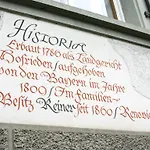 Historia
Erbaut 1786 als Landgericht
Hofrieden / aufgehoben
von den Bayern im Jahre
1800 / Im Familien-
Besitz Reiner seit 1860 /